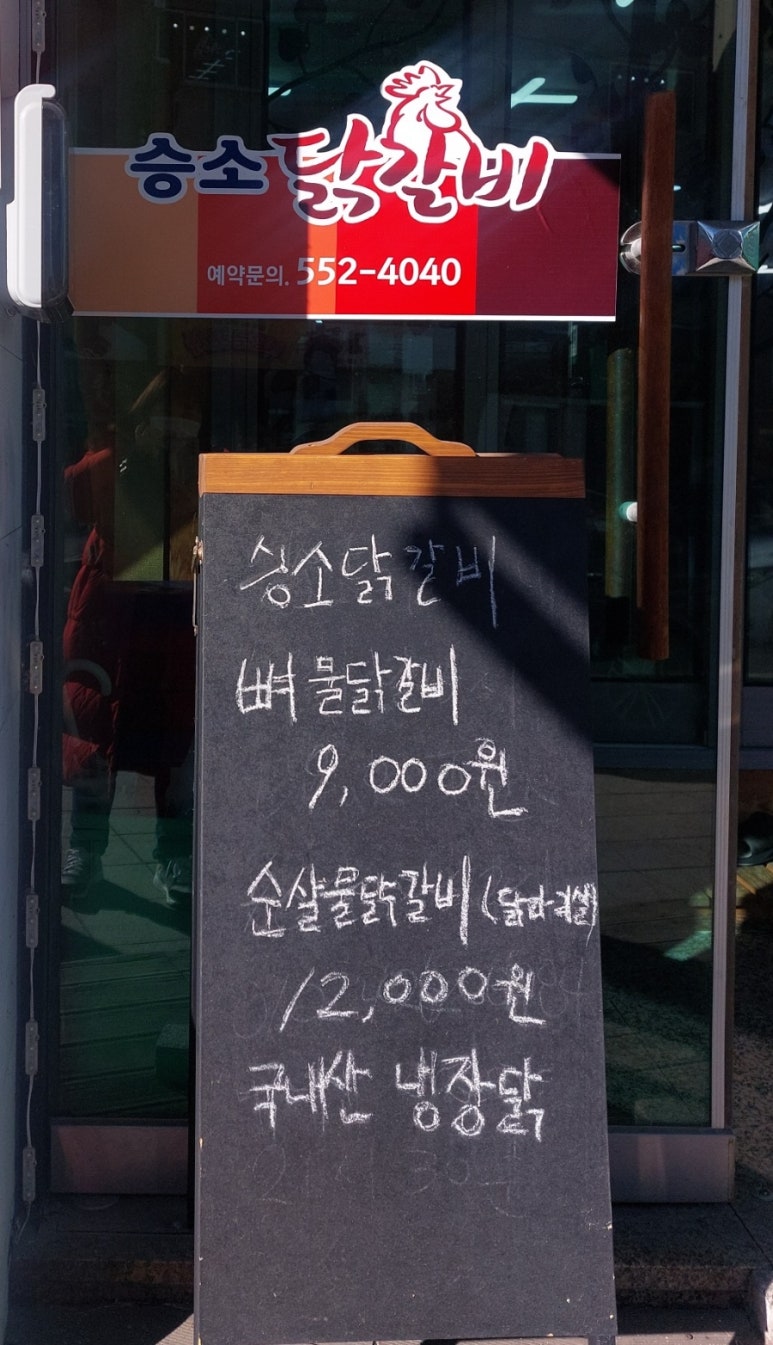 승소닭갈비
예약문의. 552-4040
승소닭갈비
뼈물닭갈비
9,000원
순살물닭갈비(닭다리살)
12,000원
국내산 냉장닭